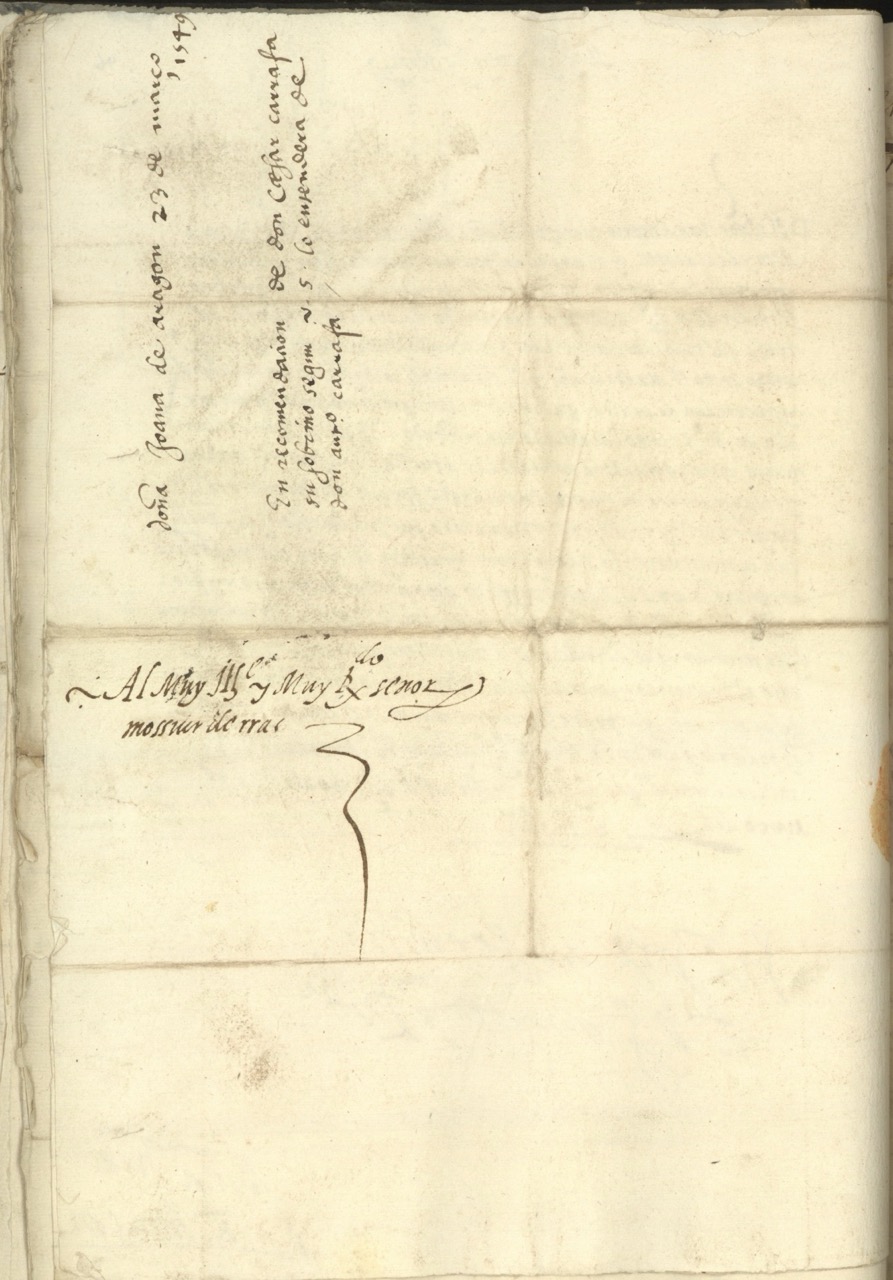 doña Joana de aragon 23 de março
1549
En recomendaçion de don Cæsar carrafa
su sobrino segun v. s. lo entendera de
don anto. carrafa
Al Muy Ill.e y Muy R.do señor
mossiur de rras